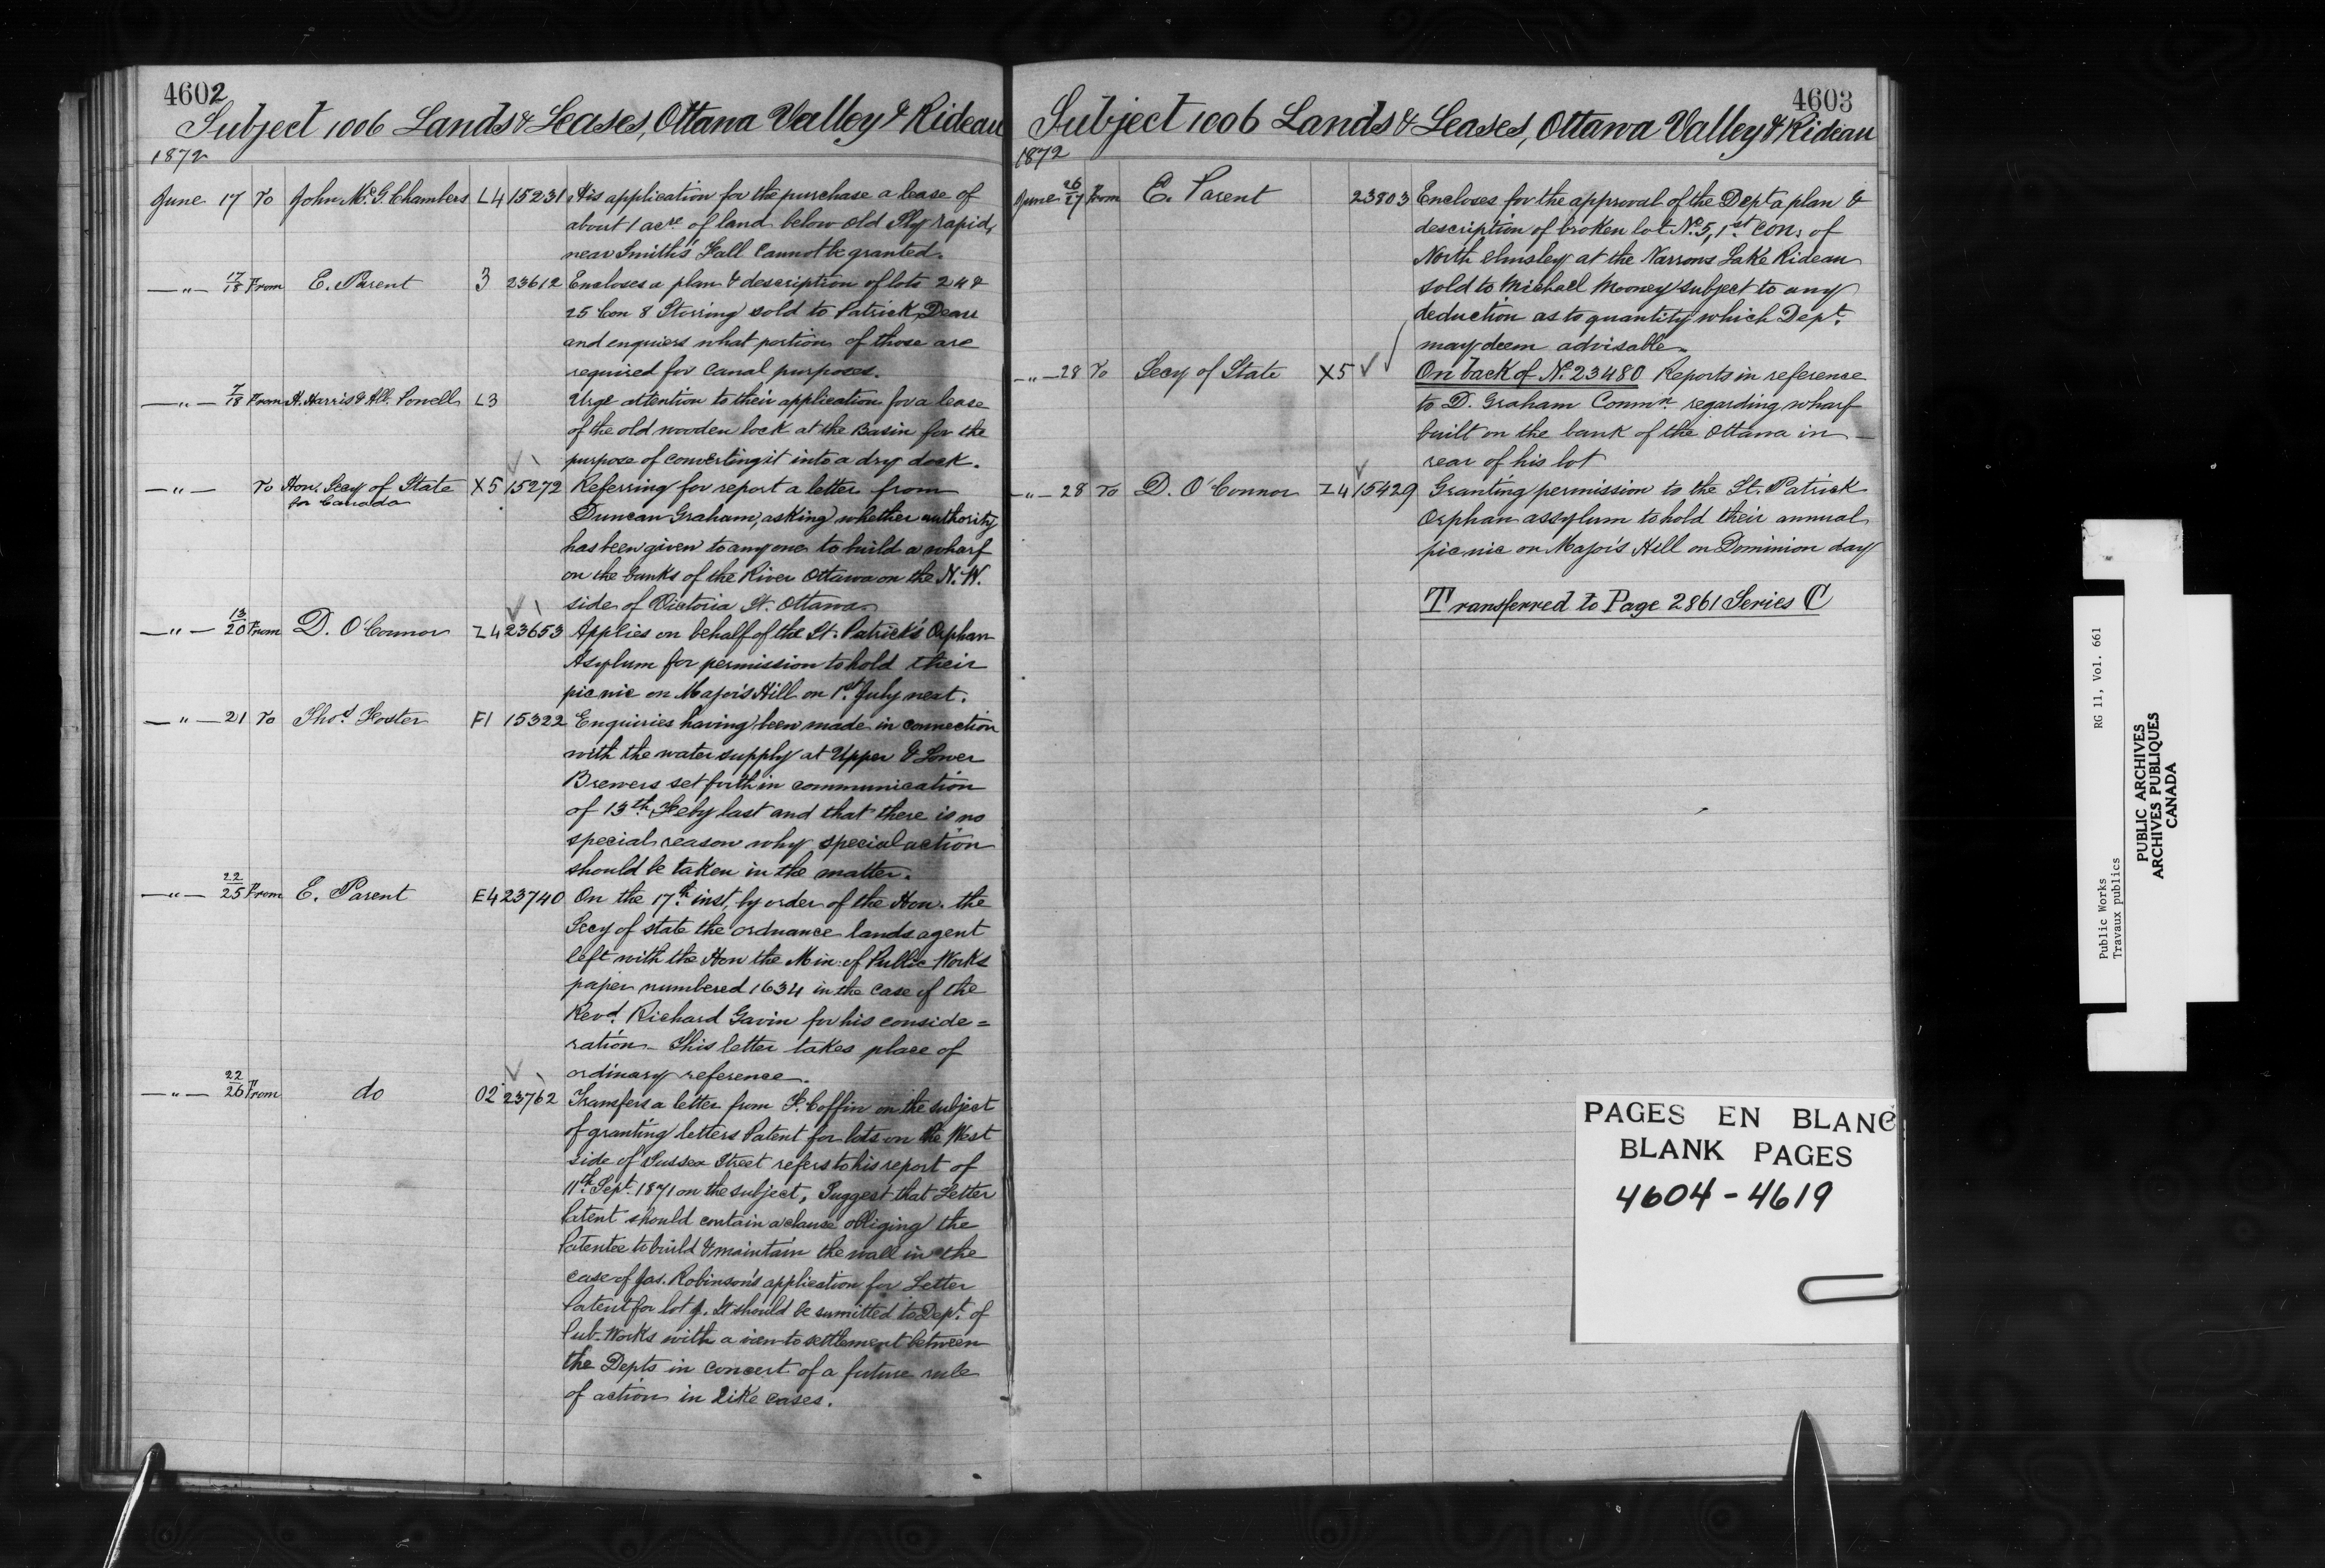 4602
Subject 1006 Lands & Leases, Ottawa Valley & Rideau
1872
June 17 To John McG. Chambers L4 15231 His application for the purchase a lease of
about 1 acre of land below old Sly rapid,
near Smith's Fall Cannot be granted.
—"— 17/18 From E. Parent 3 23612 Encloses a plan & description of lots 24 &
25 Con 8 Storring sold to Patrick
and enquires what portions of those are
required for Canal purposes.
—"— 7/18 From A. Harris & All. Powell L3 Urge attention to their application for a lease
of the old wooden lock at the Basin for the
purpose of converting it into a dry dock.
—"— To Hon. Secy of State X5 15272 Referring for report a letter from
for Canada
Duncan Graham, asking whether authority
has been given to any one to build a wharf
on the banks of the River Ottawa on the N.W.
side of Victoria St. Ottawa
—"— 13/20 From D. O'Connor Z4 23653 Applies on behalf of the St. Patrick's Orphan
Asylum for permission to hold their
pic nic on Major's Hill on 1st July next.
—"— 21 To Thos. Foster F1 15322 Enquiries having been made in connection
with the water supply at Upper & Lower
Brewers set forth in communication
of 13th. Feby last and that there is no
special reason why special action
should be taken in the matter.
—"— 22/25 From E. Parent E4 23740 On the 17th. inst, by order of the Hon. the
Secy of state the ordnance lands agent
left with the Hon the Min. of Public Works
paper numbered 1634 in the case of the
Revd. Richard Gavin for his conside=
ration – This letter takes place of
ordinary reference.
—"— 22/26 From do O2 23762 Transfers a letter from F. Coffin on the subject
of granting letters Patent for lots on the West
side of Sussex Street refers to his report of
11th. Sept. 1871 on the subject, Suggest that Letter
Patent should contain a clause obliging the
Patentee to build & maintain the wall in the
case of Jas. Robinson's application for Letter
Patent for lot It should be sumitted to Dept. of
Pub. Works with a view to settlement between
the Depts in concert of a future rule
of action in like cases.
4603
Subject 1006 Lands & Leases, Ottawa Valley & Rideau
1872
June 26/27 From E. Parent 23803 Encloses for the approval of the Dept a plan &
description of broken lot No. 5, 1st con. of
North Elmsley at the Narrows Lake Rideau
sold to Michael Mooney subject to any
deduction as to quantity which Dept.
may deem advisable.
—"— 28 To Secy of State X5 On back of No. 23480 Reports in reference
to D. Graham Commn. regarding wharf
built on the bank of the Ottawa in –
rear of his lot
—"— 28 To D. O'Connor Z4 15429 Granting permission to the St. Patrick
Orphan assylum to hold their annual
pic nic on Major's Hill on Dominion day
Transferred to Page 2861 Series C
PAGES EN BLANC
BLANK PAGES
4604 - 4619
Public Works RG 11, Vol. 661
Travaux publics
PUBLIC ARCHIVES
ARCHIVES PUBLIQUES
CANADA